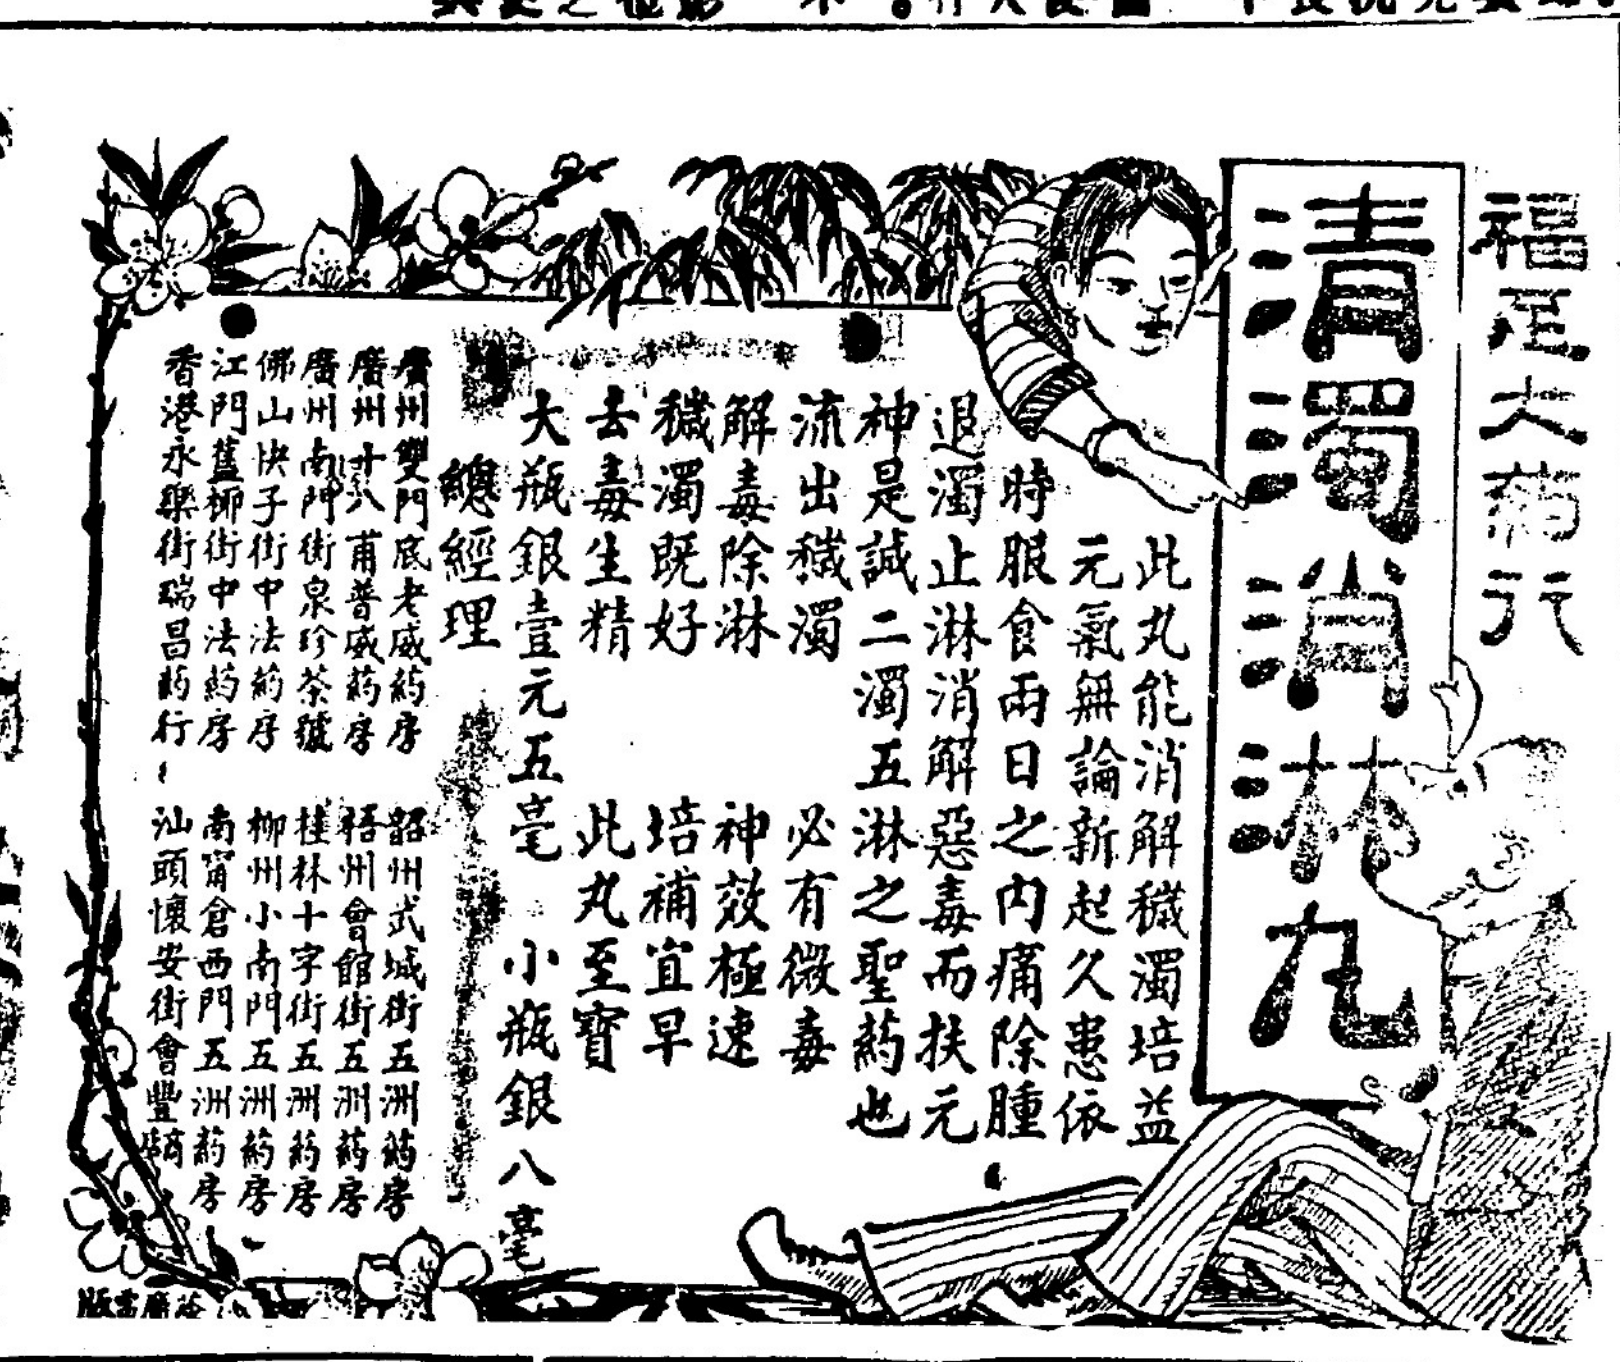 福(疋)大葯行
清濁消淋丸
此丸能消解穢濁培益
元氣無論新起久患依
時服食兩日之內痛除腫
退濁止淋消解惡毒而扶元
神是誠二濁五淋之聖葯也
流出穢濁　必有微毒
解毒除淋　神效極速
穢濁既好　培補宜早
去毒生精　此丸至寶
大瓶銀壹元五毫　小瓶銀八毫
總經理
廣州雙門底老威葯房
廣州十八甫普威葯房
廣州南門街泉珍茶號
佛山快子街中法葯房
江門舊柳街中法葯房
香港永樂街瑞昌葯行
韶州武城街五洲葯房
梧州會館街五洲葯房
桂林十字街五洲葯房
柳州小南門五洲葯房
南甯倉西門五洲葯房
汕頭懷安街會豐